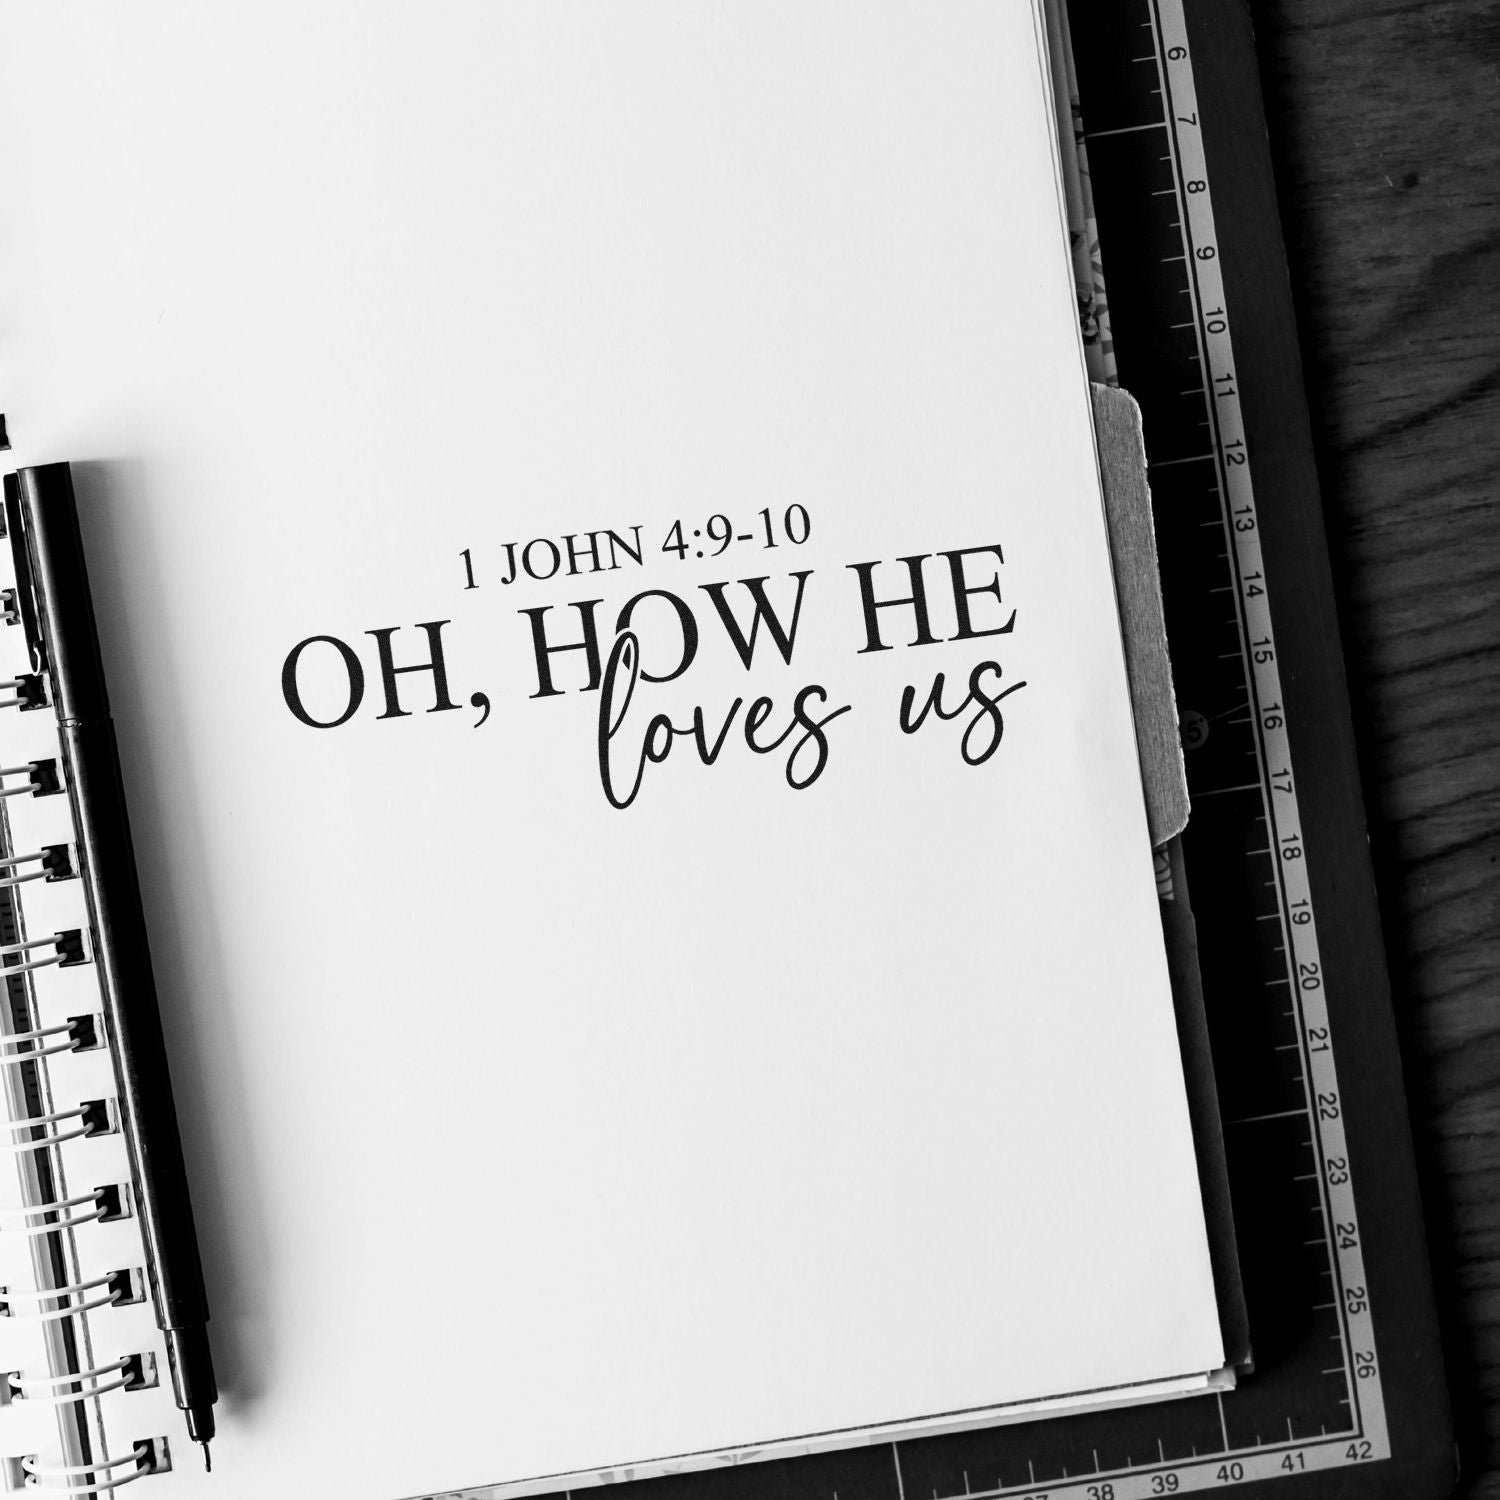 1 JOHN 4:9-10
OH, HOW HE
loves us
6
7
8
9
10
11
12
13
14
15
16
17
18
19
20
21
22
23
24
25
26
5°
37 38 39 40 41 42